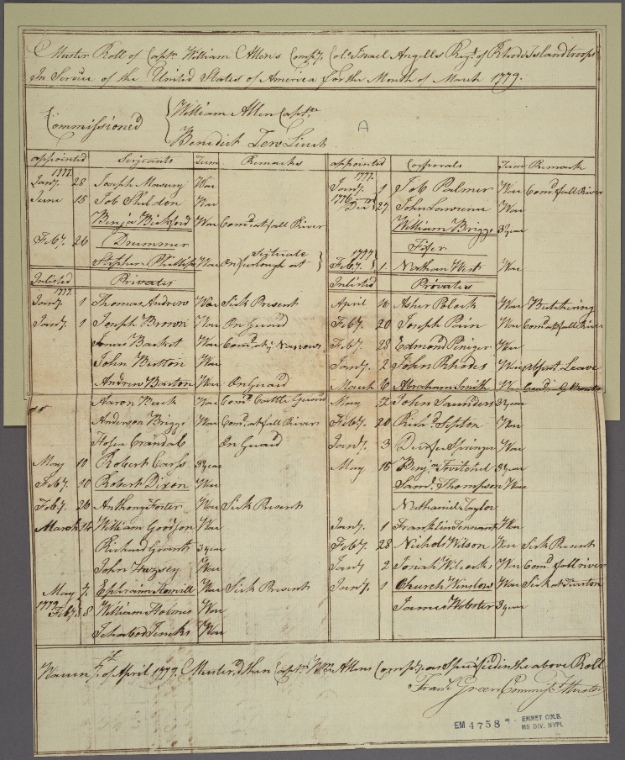 Muster Roll of Capt. William Allens Compy. Col. Israel Angells Regt. of Rhode Island troops
In Service of the United States of America for the Month of March 1779.
Commissioned
William Allen Capt.
Benedict Tew Lieut
A
appointed Serjeants Term Remarks
1777
Jany. 28 Joseph Masury War
June 15 Job Sheldon War
Benja Bickford War Comd. at fall River
Feby. 26 Drummer
Stephen Phillips War On furlough at Scituate
Inlisted Privates
1777
Jany. 1 Thomas Andrew War Sick Present
Jany. 1 Joseph Brown War On Guard
James Basket War Comd. at Narrows
John Burton War
Andrew Barton War On Guard
Aaron Buck War Comd. Cattle Guard
Anderson Briggs War Comd. at fall River
Hosea Crandal On Guard
May 10 Robert Carss 3 year
Feby. 10 Robert Dixon War
Feby. 26 Anthony Foster War Sick Present
March 14 William Godfson War
Richard Grant 3 year
John War
May 7 Ephraim Hamill War Sick Present
1778 Feby. 8 William Holmes War
Ichabod Jencks War
appointed Corporals Term Remark
1777
Jany. 1 Job Palmer War Comd. fall River
1776 Decr. 27 John Lawrence War
William Briggs 3 year
Fifer
1777
Feby. 1 Nathan West War
Inlisted Privates
April 10 Asher Polock War Butchering
Feby. 20 Joseph Pain War Comd. at fall River
Feby. 28 Edmond Piniger War
Jany. 2 John Rhodes War absent Leave
March 6 Abraham Smith War
May 2 John Saunders 3 year
Feby. 20 Richd. Sephton War
Jany. 3 Dutee Springer War
May 15 Benja. 3 year
Saml. Thompson War
Nathaniel Taylor
Jany. 1 Franklin Tennant War
Feby. 28 Nichols Wilson War Sick Present
Jany. 2 Jonah Wilcock War Comd. fall river
Jany. 1 Church Winslow War Sick at Tiverton
James Webster 3 year
Warren 4th of April 1779. Muster'd then Capt. Wm. Allens Company as Specified in the above Roll
Frans. Green Commissy. Musters
EM 4758
EMMET COLL.
MS DIV. NYPL